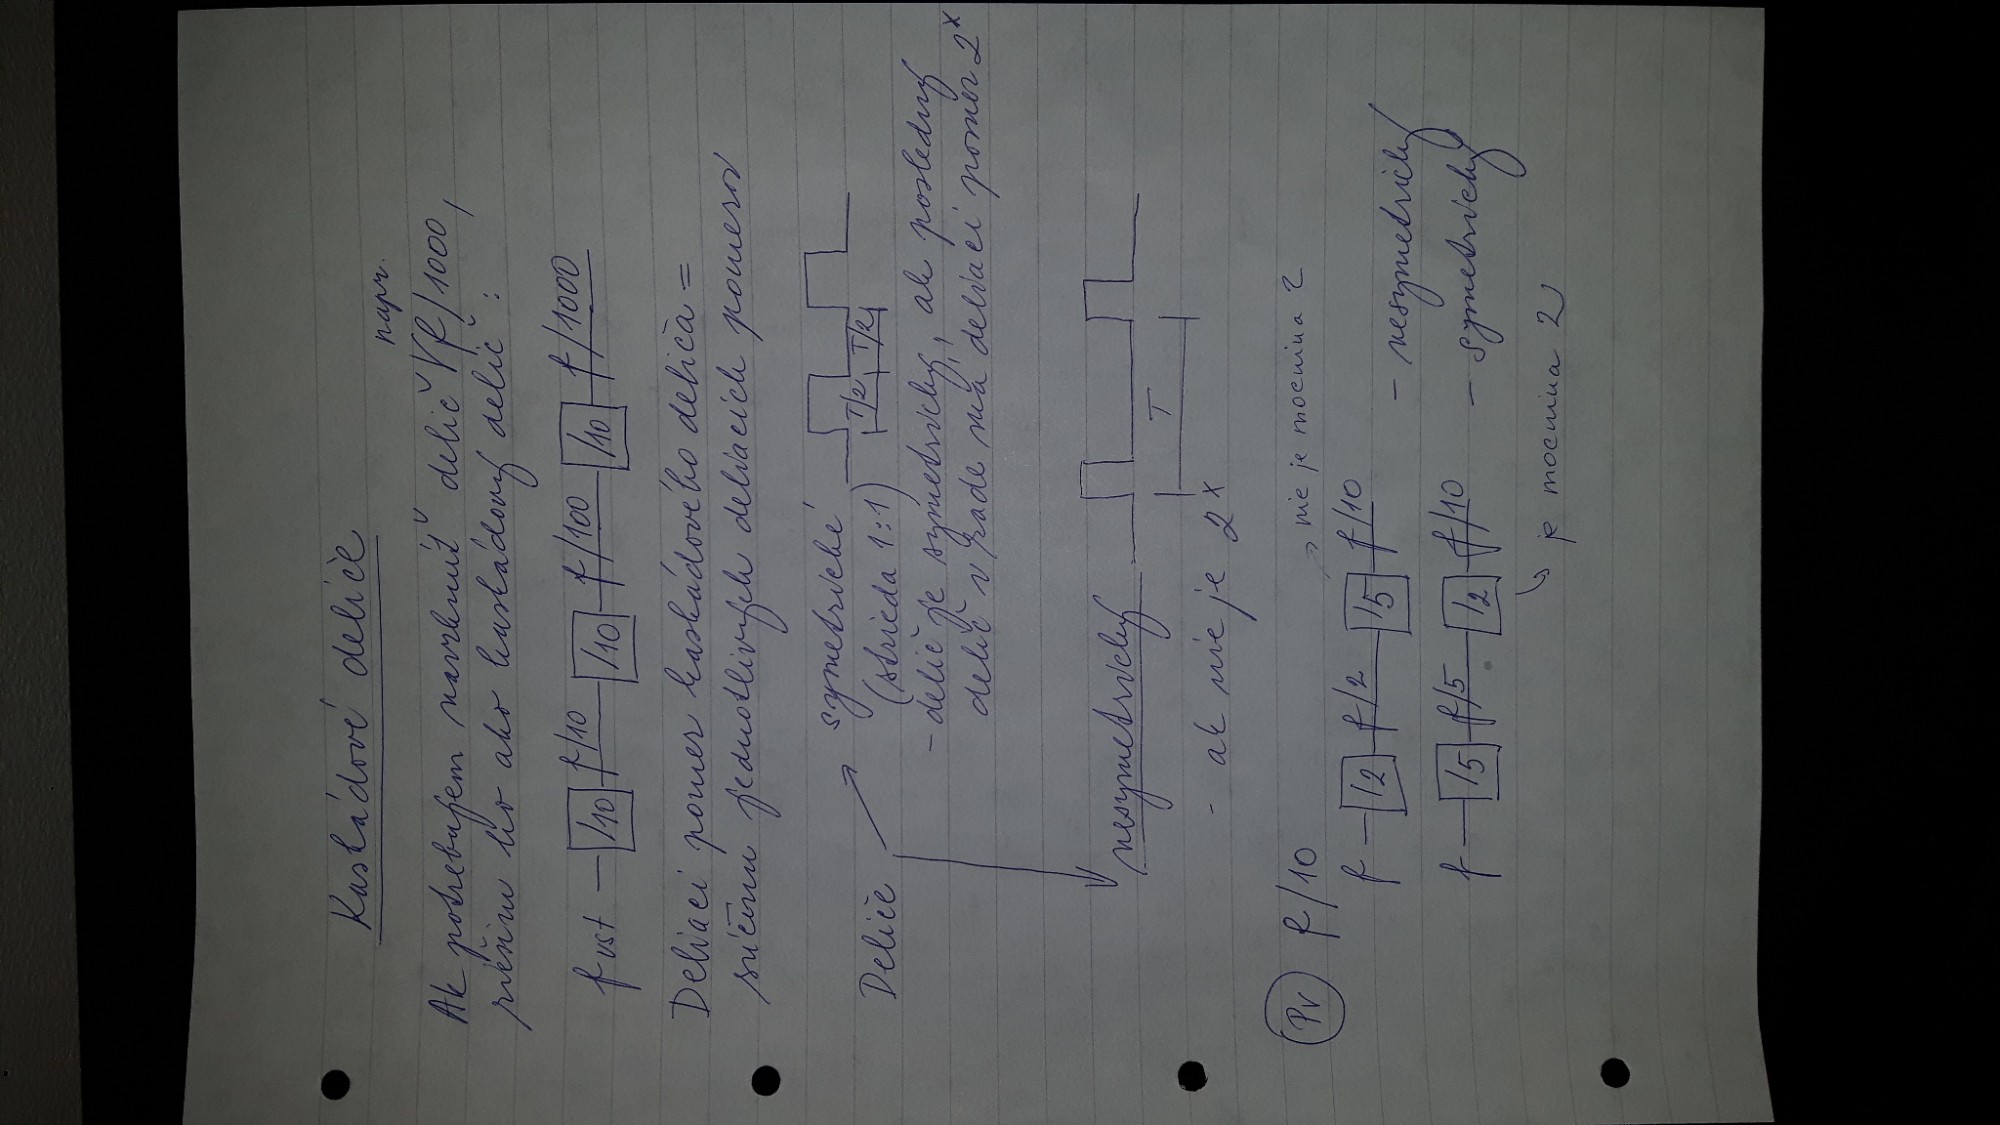 Kaskádové deliče
napr.
Ak potrebujem navrhnúť delič f/1000,
riešim ho ako kaskádový delič:
f vst /10 f/10 /10 f/100 /10 f/1000
Deliaci pomer kaskádového deliča =
súčinu jednotlivých deliacich pomerov
Deliče
symetrické
(strieda 1:1)
T/2 T/2
- delič je symetrický, ak posledný
delič v rade má deliaci pomer 2^x
nesymetrický
T
- ak nie je 2^x
Pr f/10
nie je mocnina 2
f /2 f/2 /5 f/10 - nesymetrický
f /5 f/5 /2 f/10 - symetrický
je mocnina 2